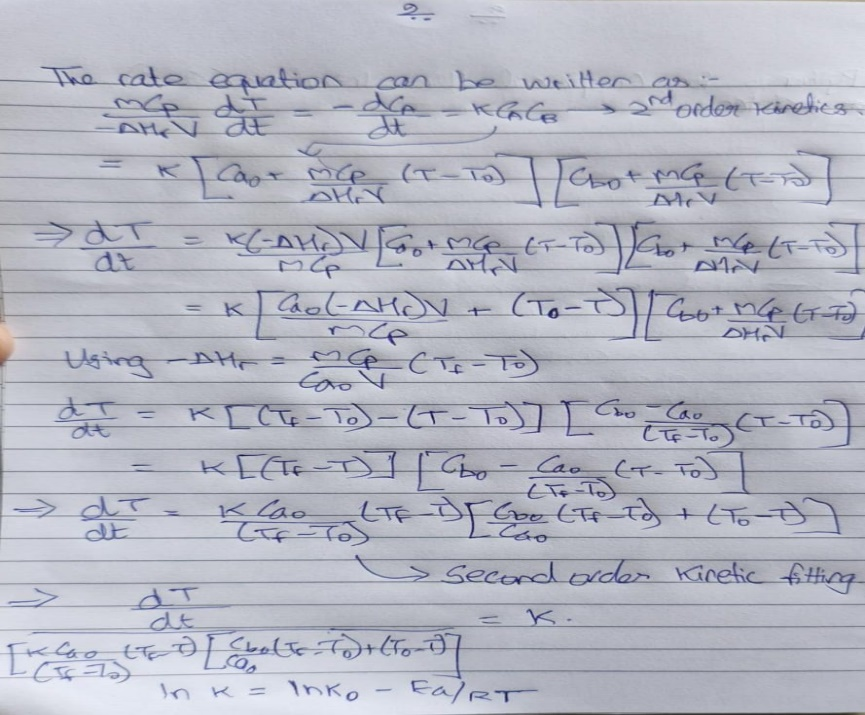 2.
The rate equation can be written as :-
mCp/-ΔHrV dT/dt = -dCA/dt = KCACB → 2nd order kinetics.
= K [Cao + mCp/ΔHrV (T-To)] [Cbo + mCp/ΔHrV (T-To)]
⇒ dT/dt = K(-ΔHr)V/mCp [Cao + mCp/ΔHrV (T-To)] [Cbo + mCp/ΔHrV (T-To)]
= K [Cao(-ΔHr)V/mCp + (To-T)] [Cbo + mCp/ΔHrV (T-To)]
Using -ΔHr = mCp/CaoV (Tf-To)
dT/dt = K[(Tf-To)-(T-To)] [Cbo - Cao/(Tf-To) (T-To)]
= K[(Tf-T)] [Cbo - Cao/(Tf-To) (T-To)]
⇒ dT/dt = K Cao/(Tf-To) (Tf-T) [Cbo/Cao (Tf-To) + (To-T)]
↳ Second order Kinetic fitting
⇒ dT/dt / [KCao/(Tf-To) (Tf-T) [Cbo/Cao (Tf-To)+(To-T)] = K.
ln K = lnKo - Ea/RT